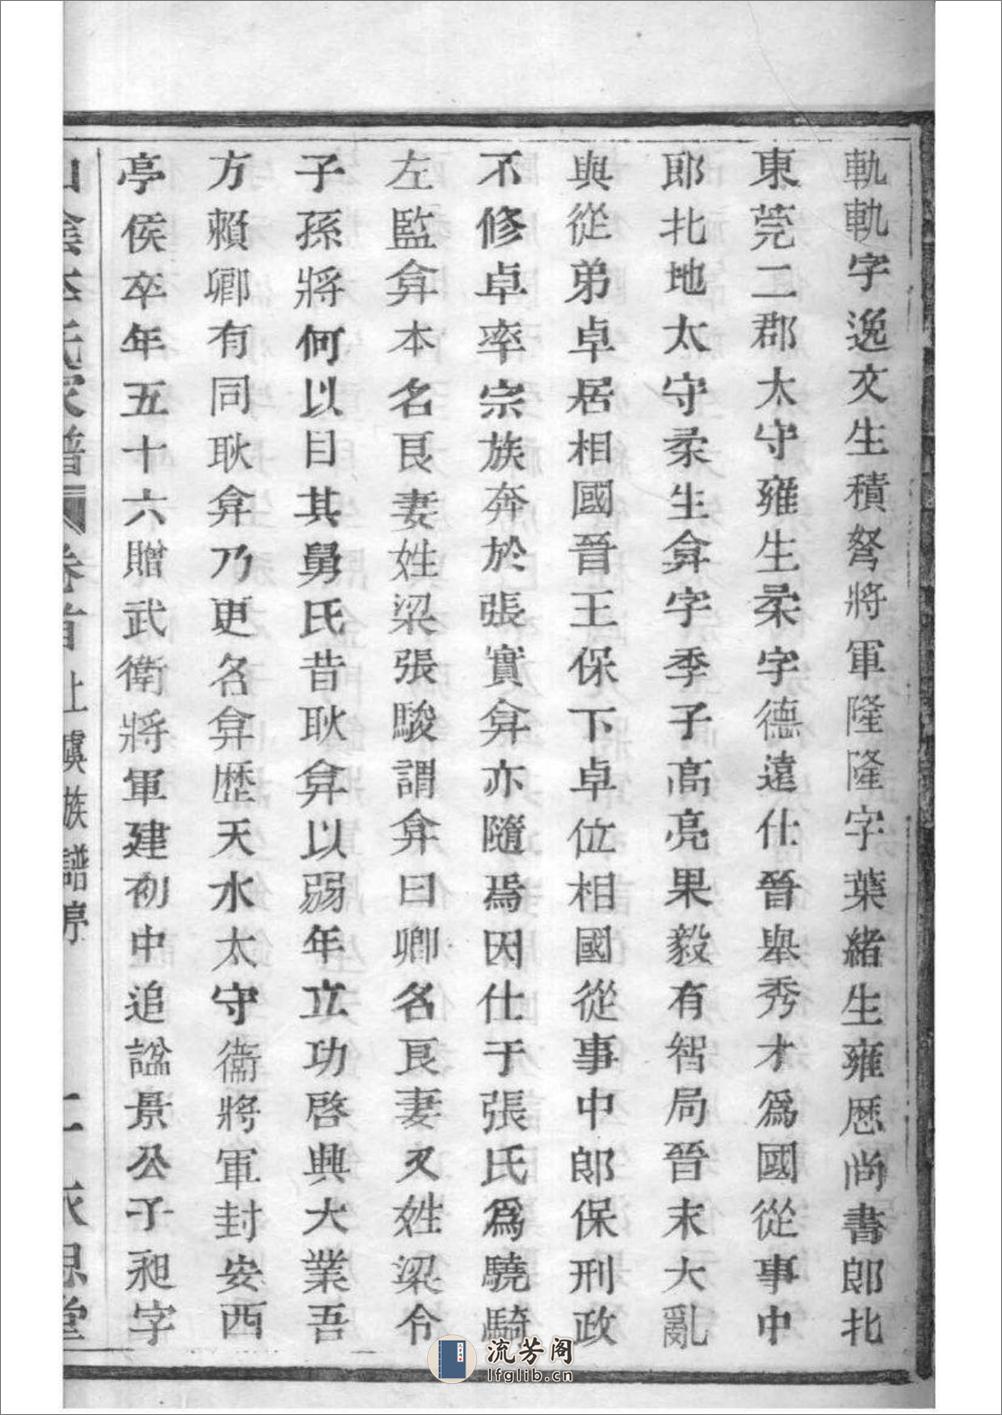 軌軌字逸文生積弩將軍隆隆字葉緒生雍歴尚書郎北
東莞二郡太守雍生柔字德遠仕晉舉秀才爲國從事中
郎北地太守柔生弇字季子高亮果毅有智局晉末大亂
與從弟卓居相國晉王保下卓位相國從事中郎保刑政
不修卓率宗族奔於張寔弇亦隨焉因仕于張氏爲驍騎
左監弇本名艮妻姓梁張駿謂弇曰卿名艮妻又姓梁令
子孫將何以目其舅氏昔耿弇以弱年立功啓興大業吾
方賴卿有同耿弇乃更名弇歴天水太守衞將軍封安西
亭侯卒年五十六贈武衛將軍建初中追諡景公子昶字
山陰李氏家譜 卷首上虞族譜序 二 依思堂
流芳阁
lfglib.cn